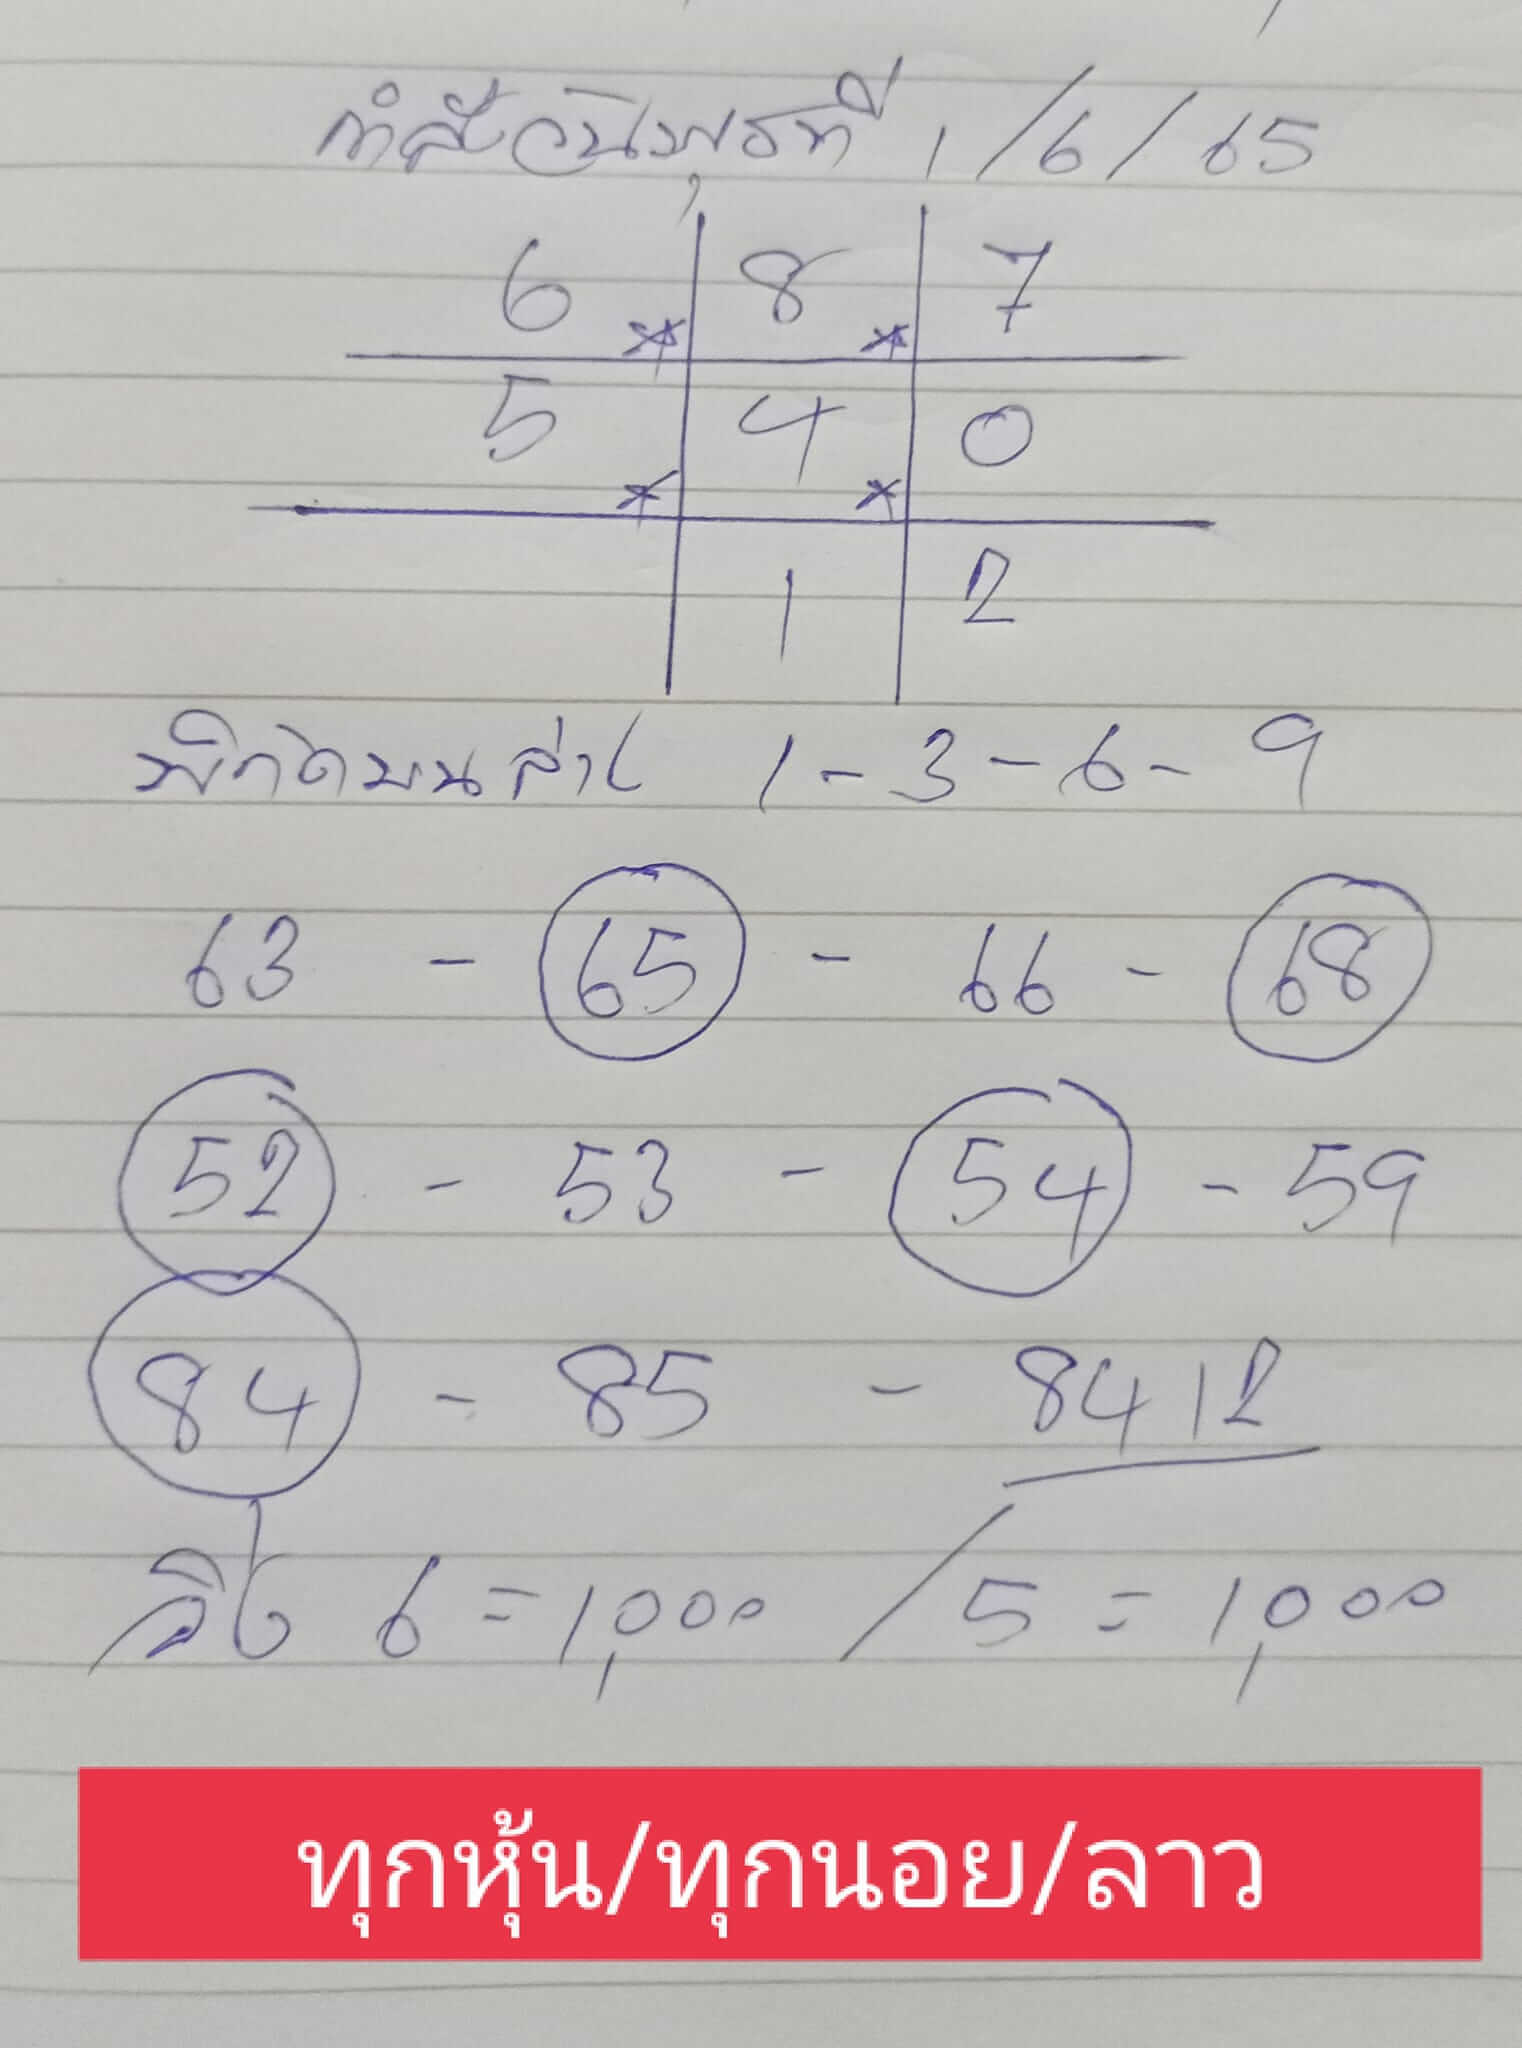 กำลังวันพุธที่ 1/6/65
6 8 7
5 4 0
1 2
พิกัดบนล่าง 1-3-6-9
63 - 65 - 66 - 68
52 - 53 - 54 - 59
84 - 85 - 8412
วิ่ง 6 = 1,000 / 5 = 1,000
ทุกหุ้น/ทุกนอย/ลาว